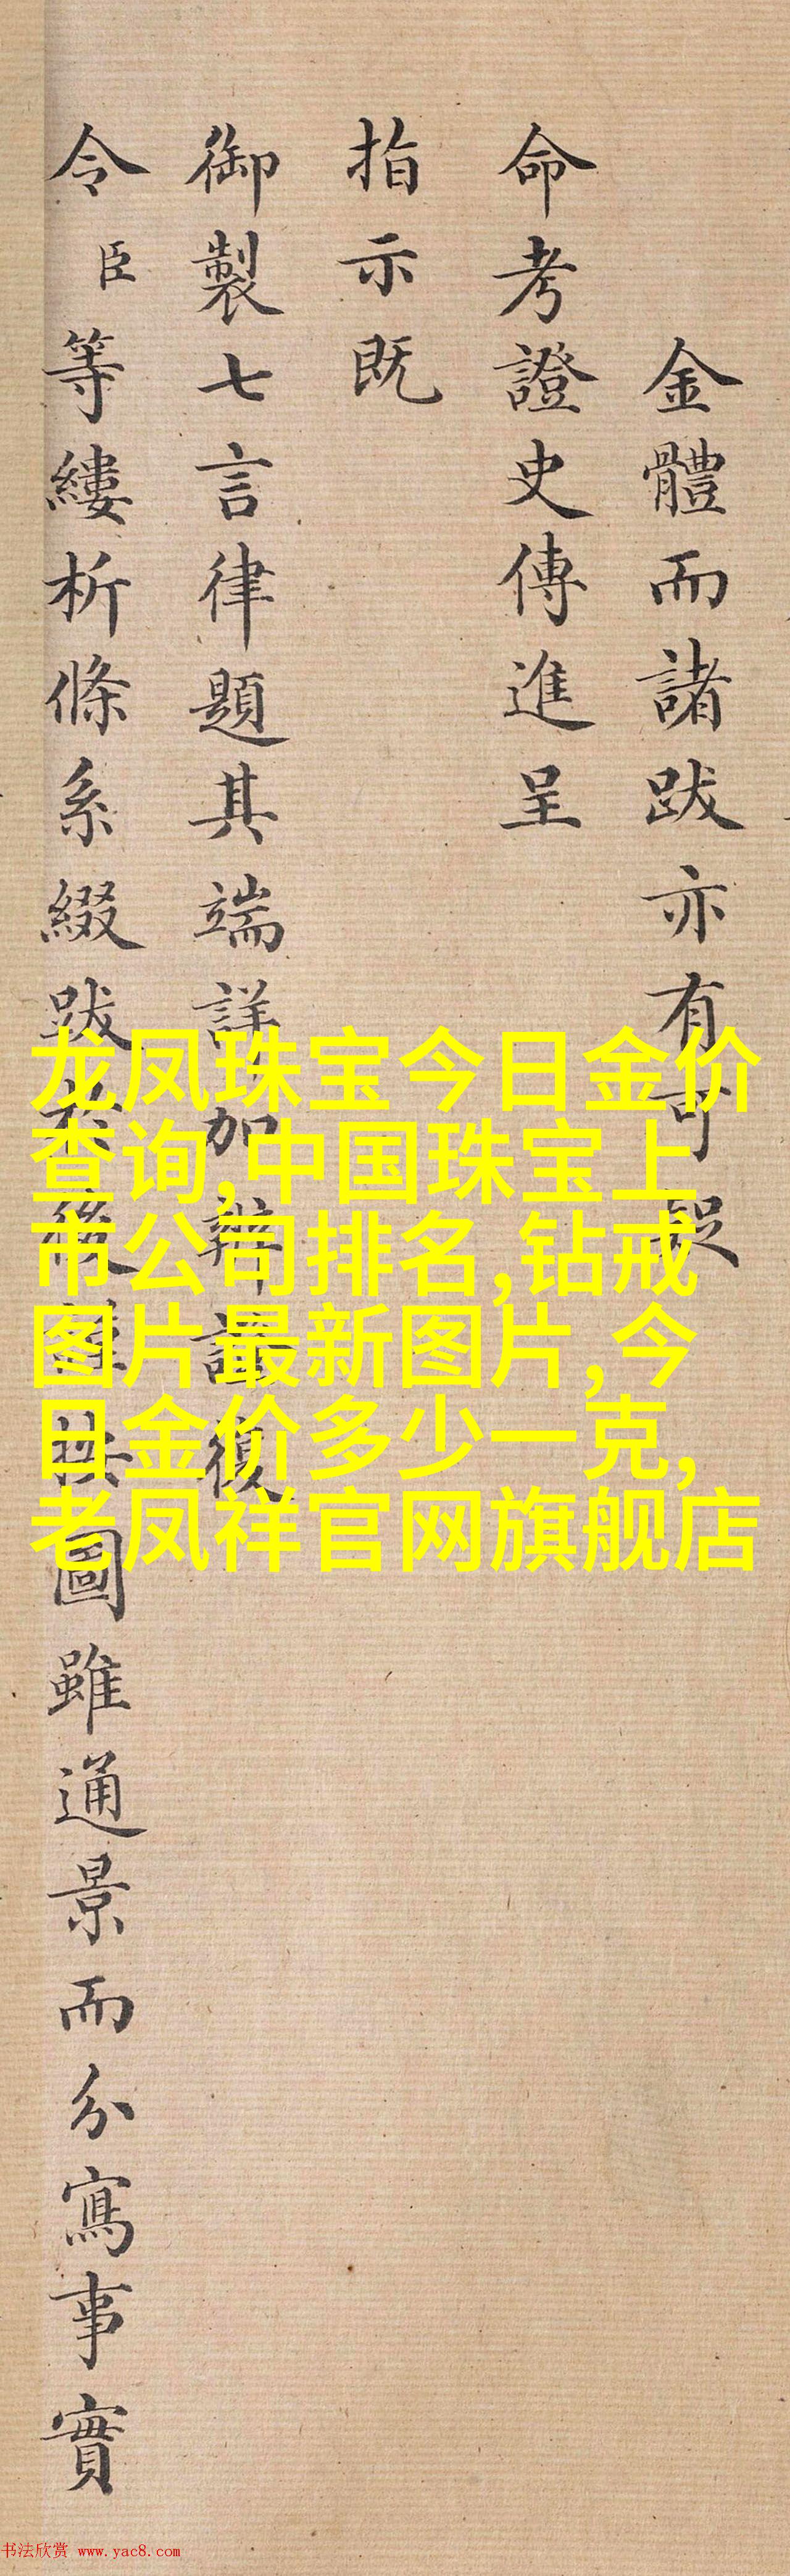 金體而諸跋亦有可
命考證史傳進呈
指示既
御製七言律題其端詳加復
令臣等縷析條系綴跋後按圖雖通景而分寫事實
龙凤珠宝今日金价
查询,中国珠宝上
市公司排名,钻戒
图片最新图片,今
日金价多少一克,
老凤祥官网旗舰店
书法欣赏 www.yac8.com